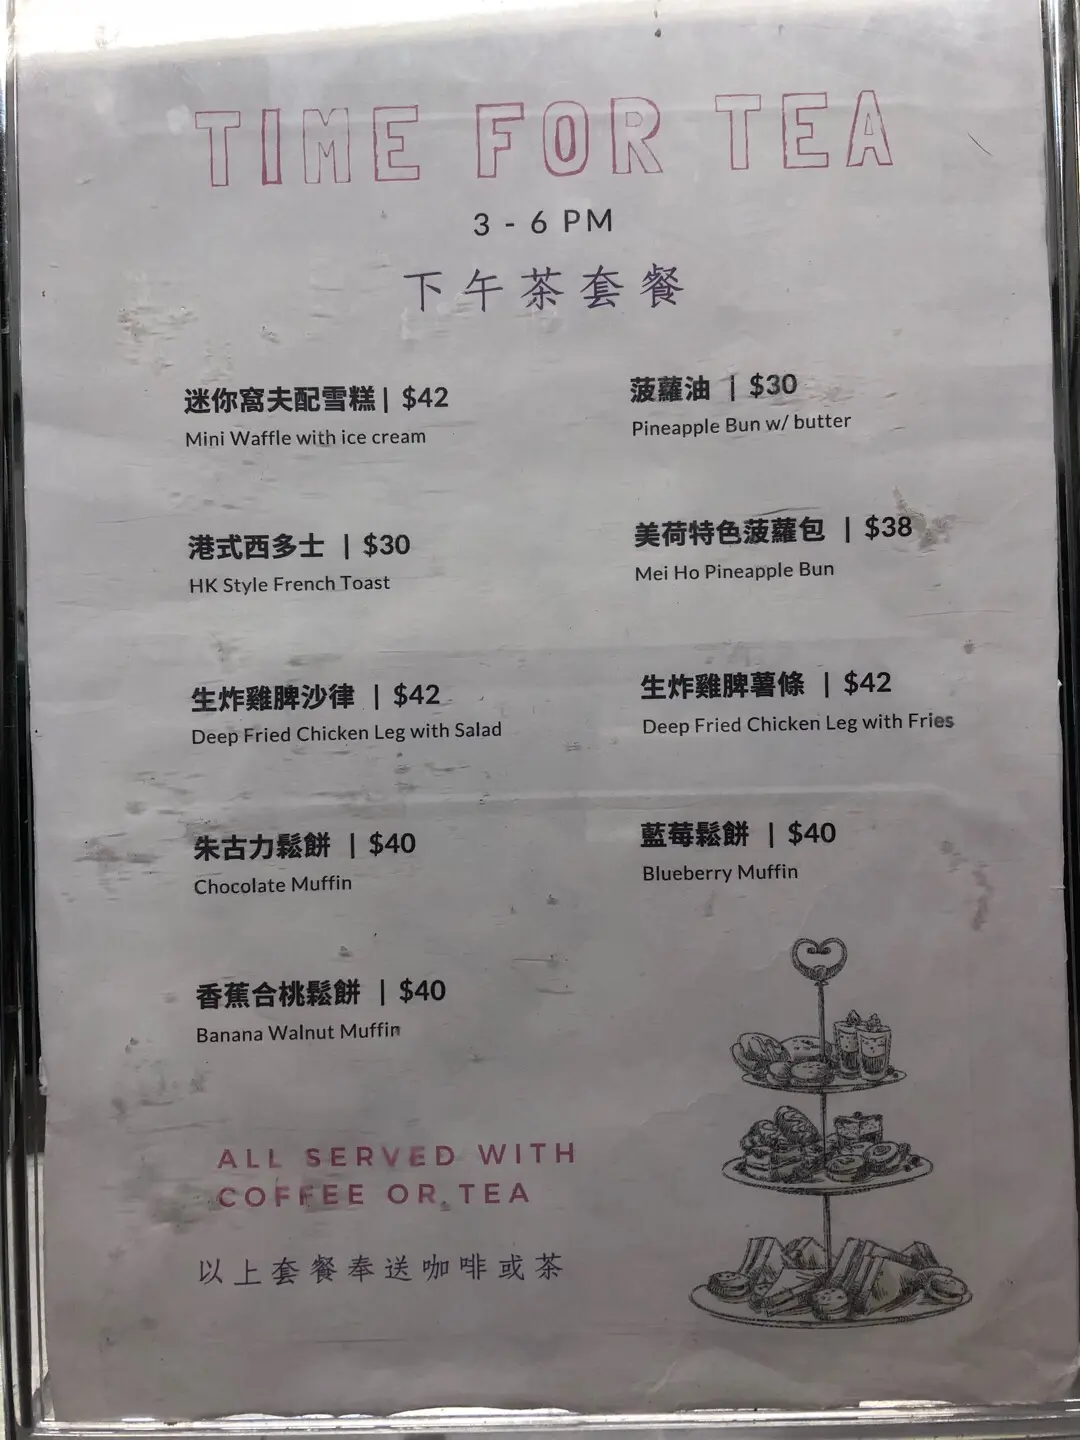 TIME FOR TEA
3 - 6 PM
下午茶套餐
迷你窩夫配雪糕 | $42
Mini Waffle with ice cream
菠蘿油 | $30
Pineapple Bun w/ butter
港式西多士 | $30
HK Style French Toast
美荷特色菠蘿包 | $38
Mei Ho Pineapple Bun
生炸雞脾沙律 | $42
Deep Fried Chicken Leg with Salad
生炸雞脾薯條 | $42
Deep Fried Chicken Leg with Fries
朱古力鬆餅 | $40
Chocolate Muffin
藍莓鬆餅 | $40
Blueberry Muffin
香蕉合桃鬆餅 | $40
Banana Walnut Muffin
ALL SERVED WITH
COFFEE OR TEA
以上套餐奉送咖啡或茶